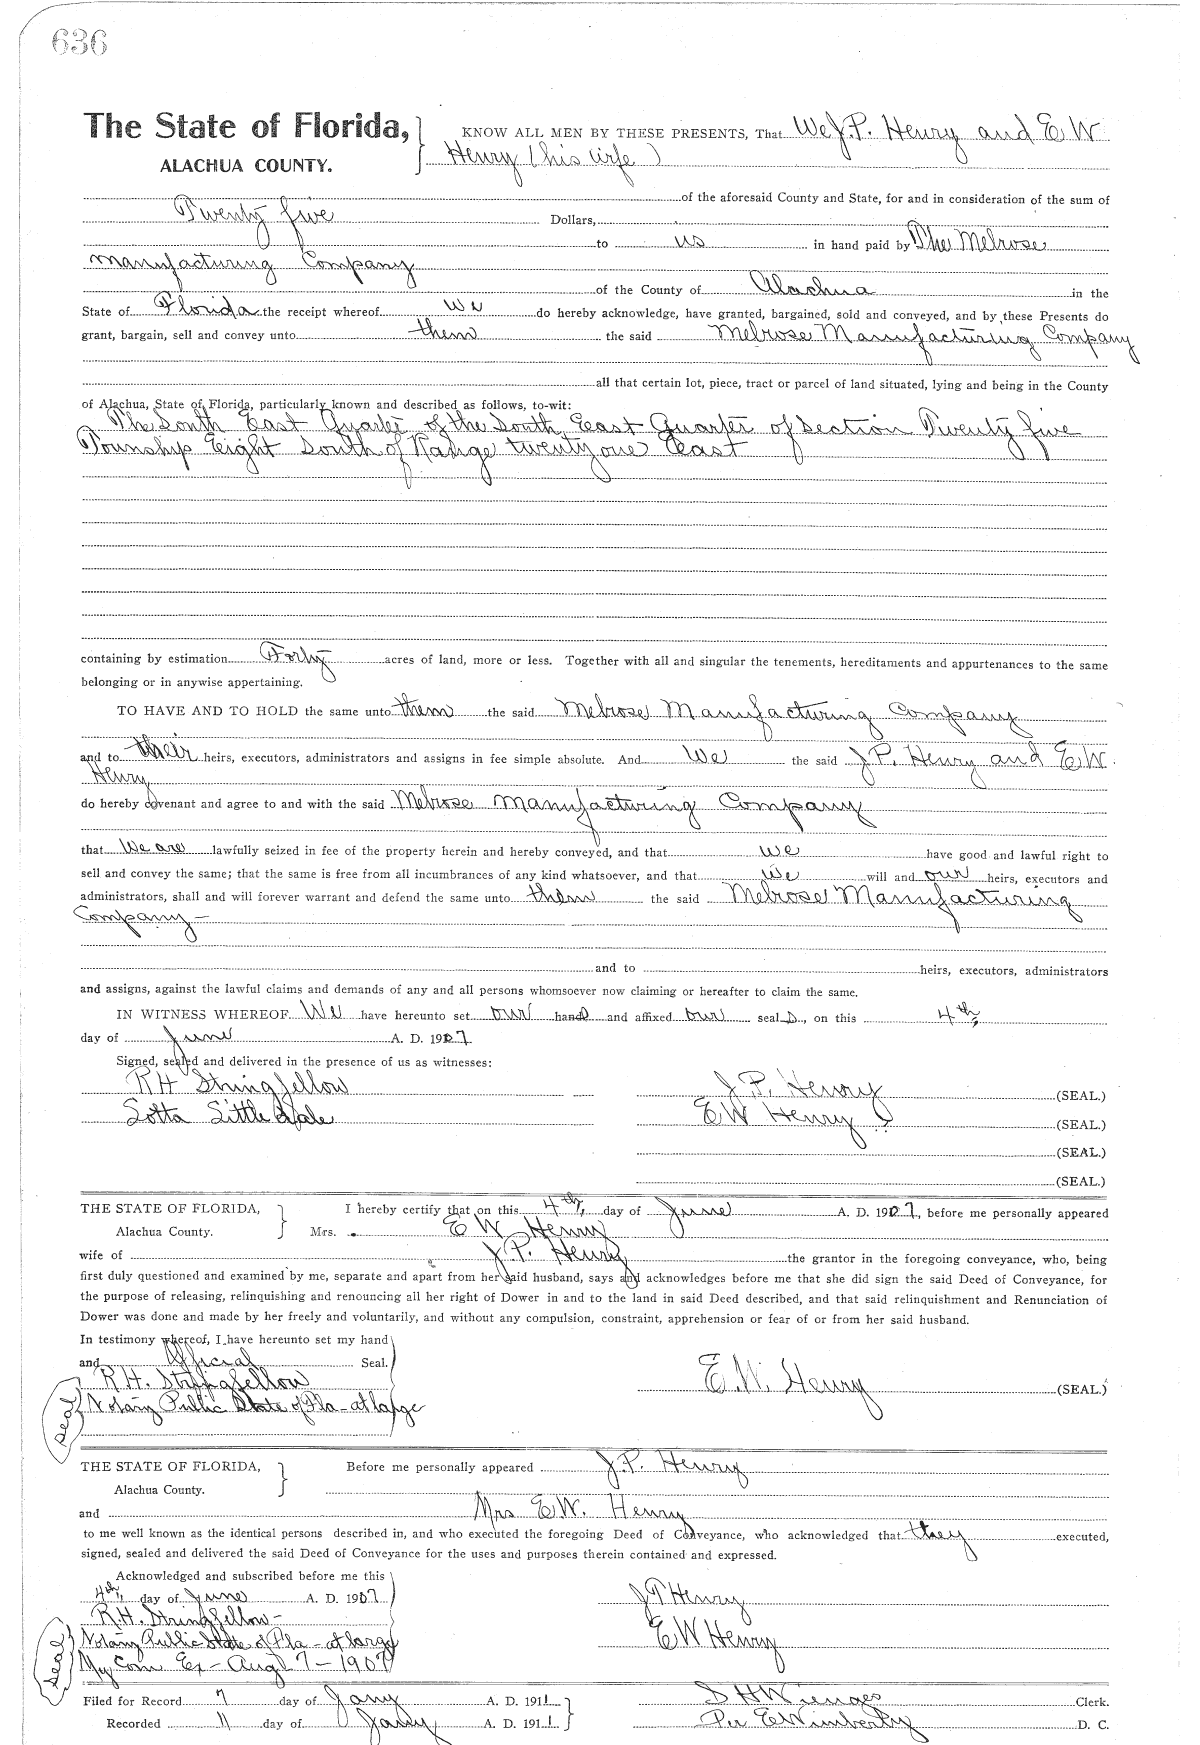 636
The State of Florida, } KNOW ALL MEN BY THESE PRESENTS, That We J.P. Henry and E W
ALACHUA COUNTY. Henry (his wife)
of the aforesaid County and State, for and in consideration of the sum of
Twenty five Dollars,
to us in hand paid by The Melrose
Manufacturing Company
of the County of Alachua in the
State of Florida the receipt whereof we do hereby acknowledge, have granted, bargained, sold and conveyed, and by these Presents do
grant, bargain, sell and convey unto them the said Melrose Manufacturing Company
all that certain lot, piece, tract or parcel of land situated, lying and being in the County
of Alachua, State of Florida, particularly known and described as follows, to-wit:
The South East Quarter of the South East Quarter of Section Twenty five
Township Eight South of Range twenty one East
containing by estimation Forty acres of land, more or less. Together with all and singular the tenements, hereditaments and appurtenances to the same
belonging or in anywise appertaining.
TO HAVE AND TO HOLD the same unto them the said Melrose Manufacturing Company
and to their heirs, executors, administrators and assigns in fee simple absolute. And We the said J.P. Henry and E W
Henry
do hereby covenant and agree to and with the said Melrose Manufacturing Company
that We are lawfully seized in fee of the property herein and hereby conveyed, and that we have good and lawful right to
sell and convey the same; that the same is free from all incumbrances of any kind whatsoever, and that we will and our heirs, executors and
administrators, shall and will forever warrant and defend the same unto them the said Melrose Manufacturing
Company –
and to heirs, executors, administrators
and assigns, against the lawful claims and demands of any and all persons whomsoever now claiming or hereafter to claim the same.
IN WITNESS WHEREOF We have hereunto set our hands and affixed our seal s, on this 4th,
day of June A. D. 1907
Signed, sealed and delivered in the presence of us as witnesses:
RH Stringfellow J.P. Henry (SEAL.)
Lotta Little Hale E W Henry (SEAL.)
(SEAL.)
(SEAL.)
THE STATE OF FLORIDA, } I hereby certify that on this 4th, day of June A. D. 1907, before me personally appeared
Alachua County. Mrs. E W Henry
wife of J.P. Henry the grantor in the foregoing conveyance, who, being
first duly questioned and examined by me, separate and apart from her said husband, says and acknowledges before me that she did sign the said Deed of Conveyance, for
the purpose of releasing, relinquishing and renouncing all her right of Dower in and to the land in said Deed described, and that said relinquishment and Renunciation of
Dower was done and made by her freely and voluntarily, and without any compulsion, constraint, apprehension or fear of or from her said husband.
In testimony whereof, I have hereunto set my hand
and Official Seal.
R.H. Stringfellow E.W. Henry (SEAL.)
seal Notary Public State of Fla – at large
THE STATE OF FLORIDA, } Before me personally appeared J.P. Henry
Alachua County.
and Mrs E W. Henry
to me well known as the identical persons described in, and who executed the foregoing Deed of Conveyance, who acknowledged that they executed,
signed, sealed and delivered the said Deed of Conveyance for the uses and purposes therein contained and expressed.
Acknowledged and subscribed before me this
4th, day of June A. D. 1907 J P Henry
R.H. Stringfellow –
seal Notary Public State of Fla – at large E W Henry
My Com Ex – Aug 7 – 1907
Filed for Record 7 day of Jany A. D. 1911 } S H Wienges Clerk.
Recorded 11 day of Jany A. D. 1911 Per E Wimberly D. C.